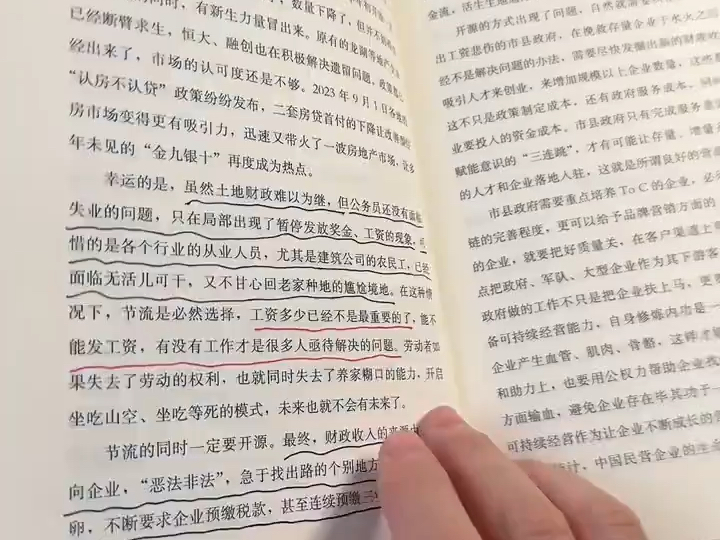 的同时，有新生力量冒出来。原有的龙湖等地产
已经断臂求生，恒大、融创也在积极解决遗留问题，政策都
经出来了，市场的认可度还是不够。2023 年 9 月 1 日
“认房不认贷” 政策纷纷发布，二套房首付的下降让
房市场变得更有吸引力，迅速又带火了一波房地产市场，
年未见的 “金九银十” 再度成为热点。
幸运的是，虽然土地财政难以为继，但公务员还没有面临
失业的问题，只在局部出现了暂停发放奖金、工资的现象，可
惜的是各个行业的从业人员，尤其是建筑公司的农民工，已经
面临无活儿可干，又不甘心回老家种地的尴尬境地。在这种情
况下，节流是必然选择，工资多少已经不是最重要的了，能不
能发工资，有没有工作才是很多人亟待解决的问题。劳动者如
果失去了劳动的权利，也就同时失去了养家糊口的能力，开启
坐吃山空、坐吃等死的模式，未来也就不会有未来了。
节流的同时一定要开源。最终，财政收入的来源
向企业，“恶法非法”，急于找出路的个别地方
卵，不断要求企业预缴税款，甚至连续预缴三
金流，活生生地
开源的方式出现了问题，自然就需要
出工资悲伤的市县政府，在挽救存量企业于水火之
经不是解决问题的办法，需要尽快发掘出脑的财政收
吸引人才来创业，来增加规模以上企业数量，这些
这不只是政策制定成本，还有政府服务成本、
业要投入的资金成本。市县政府只有完成服务意
赋能意识的 “三连跳”，才有可能让存量、增量
的人才和企业落地人驻，这就是所谓良好的营
市县政府需要重点培养 To C 的企业，必须
链的完善程度，更可以给予品牌营销方面的
的企业，就要把好质量关，在客户渠道上
点把政府、军队、大型企业作为其下游客
政府做的工作不只是把企业扶上马，更
备可持续经营能力，自身修炼内功是一
企业产生血管、肌肉、骨骼，这样才
和助力上，也要用公权力帮助企业
方面输血，避免企业存在毕其功于一
可持续经营作为让企业不断成长的
计，中国民营企业的生